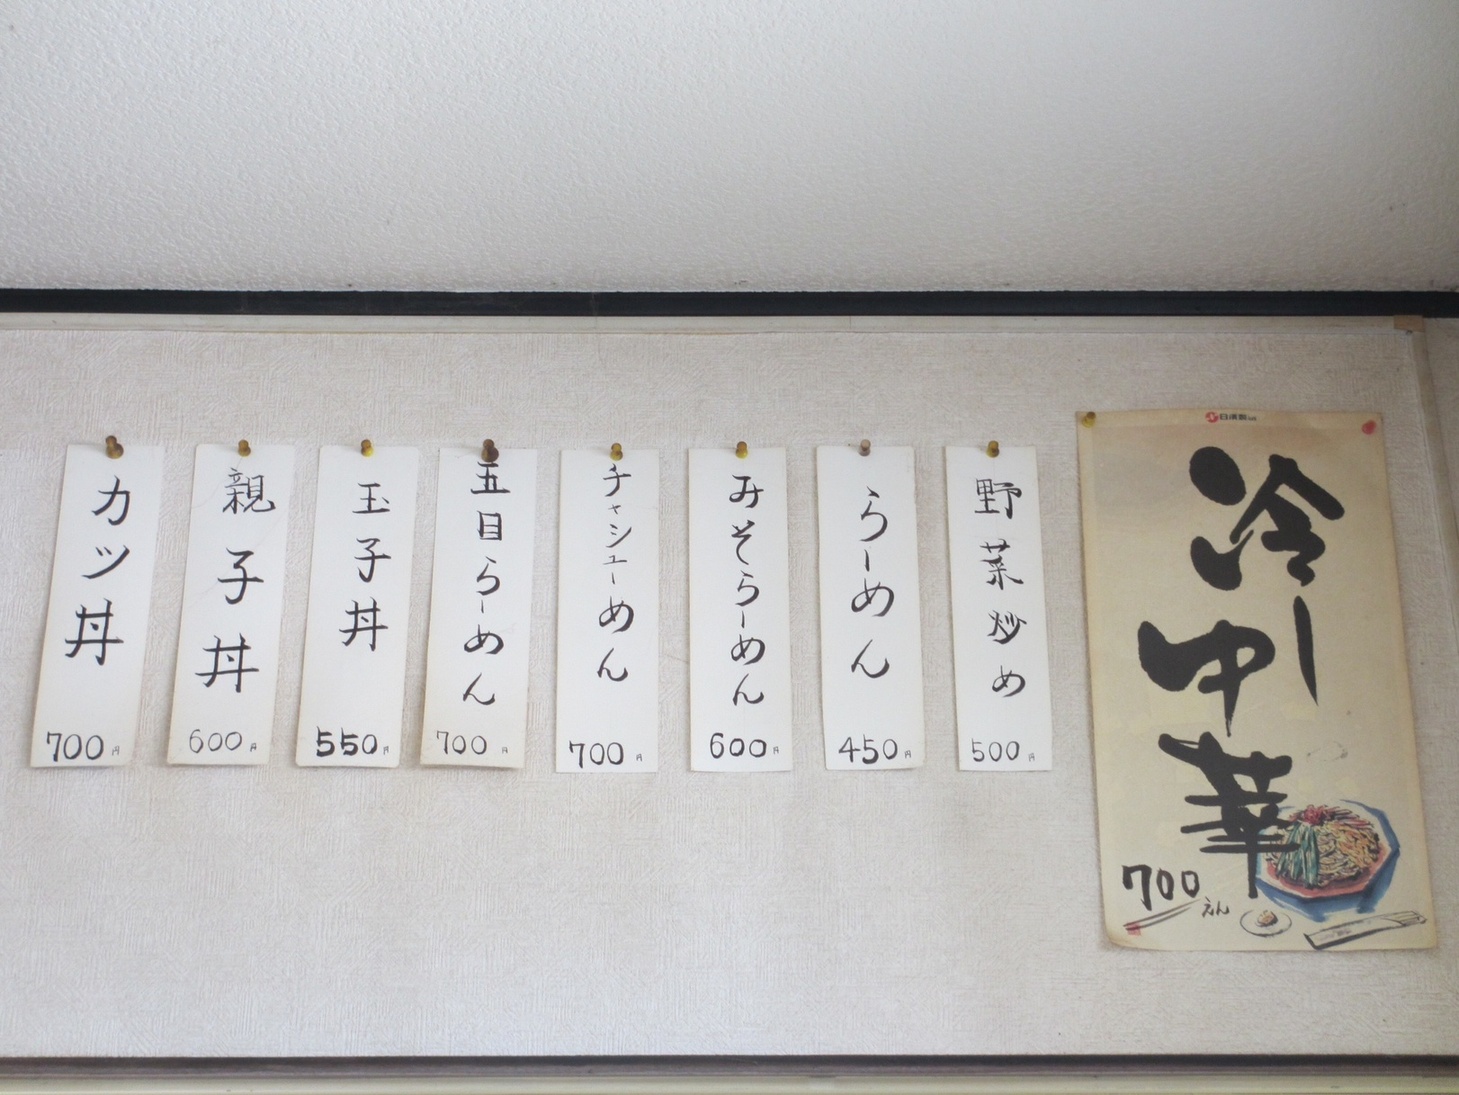 冷し中華
700えん
野菜炒め
500円
らーめん
450円
みそらーめん
600円
チャシューめん
700円
五目らーめん
700円
玉子丼
550円
親子丼
600円
カツ丼
700円